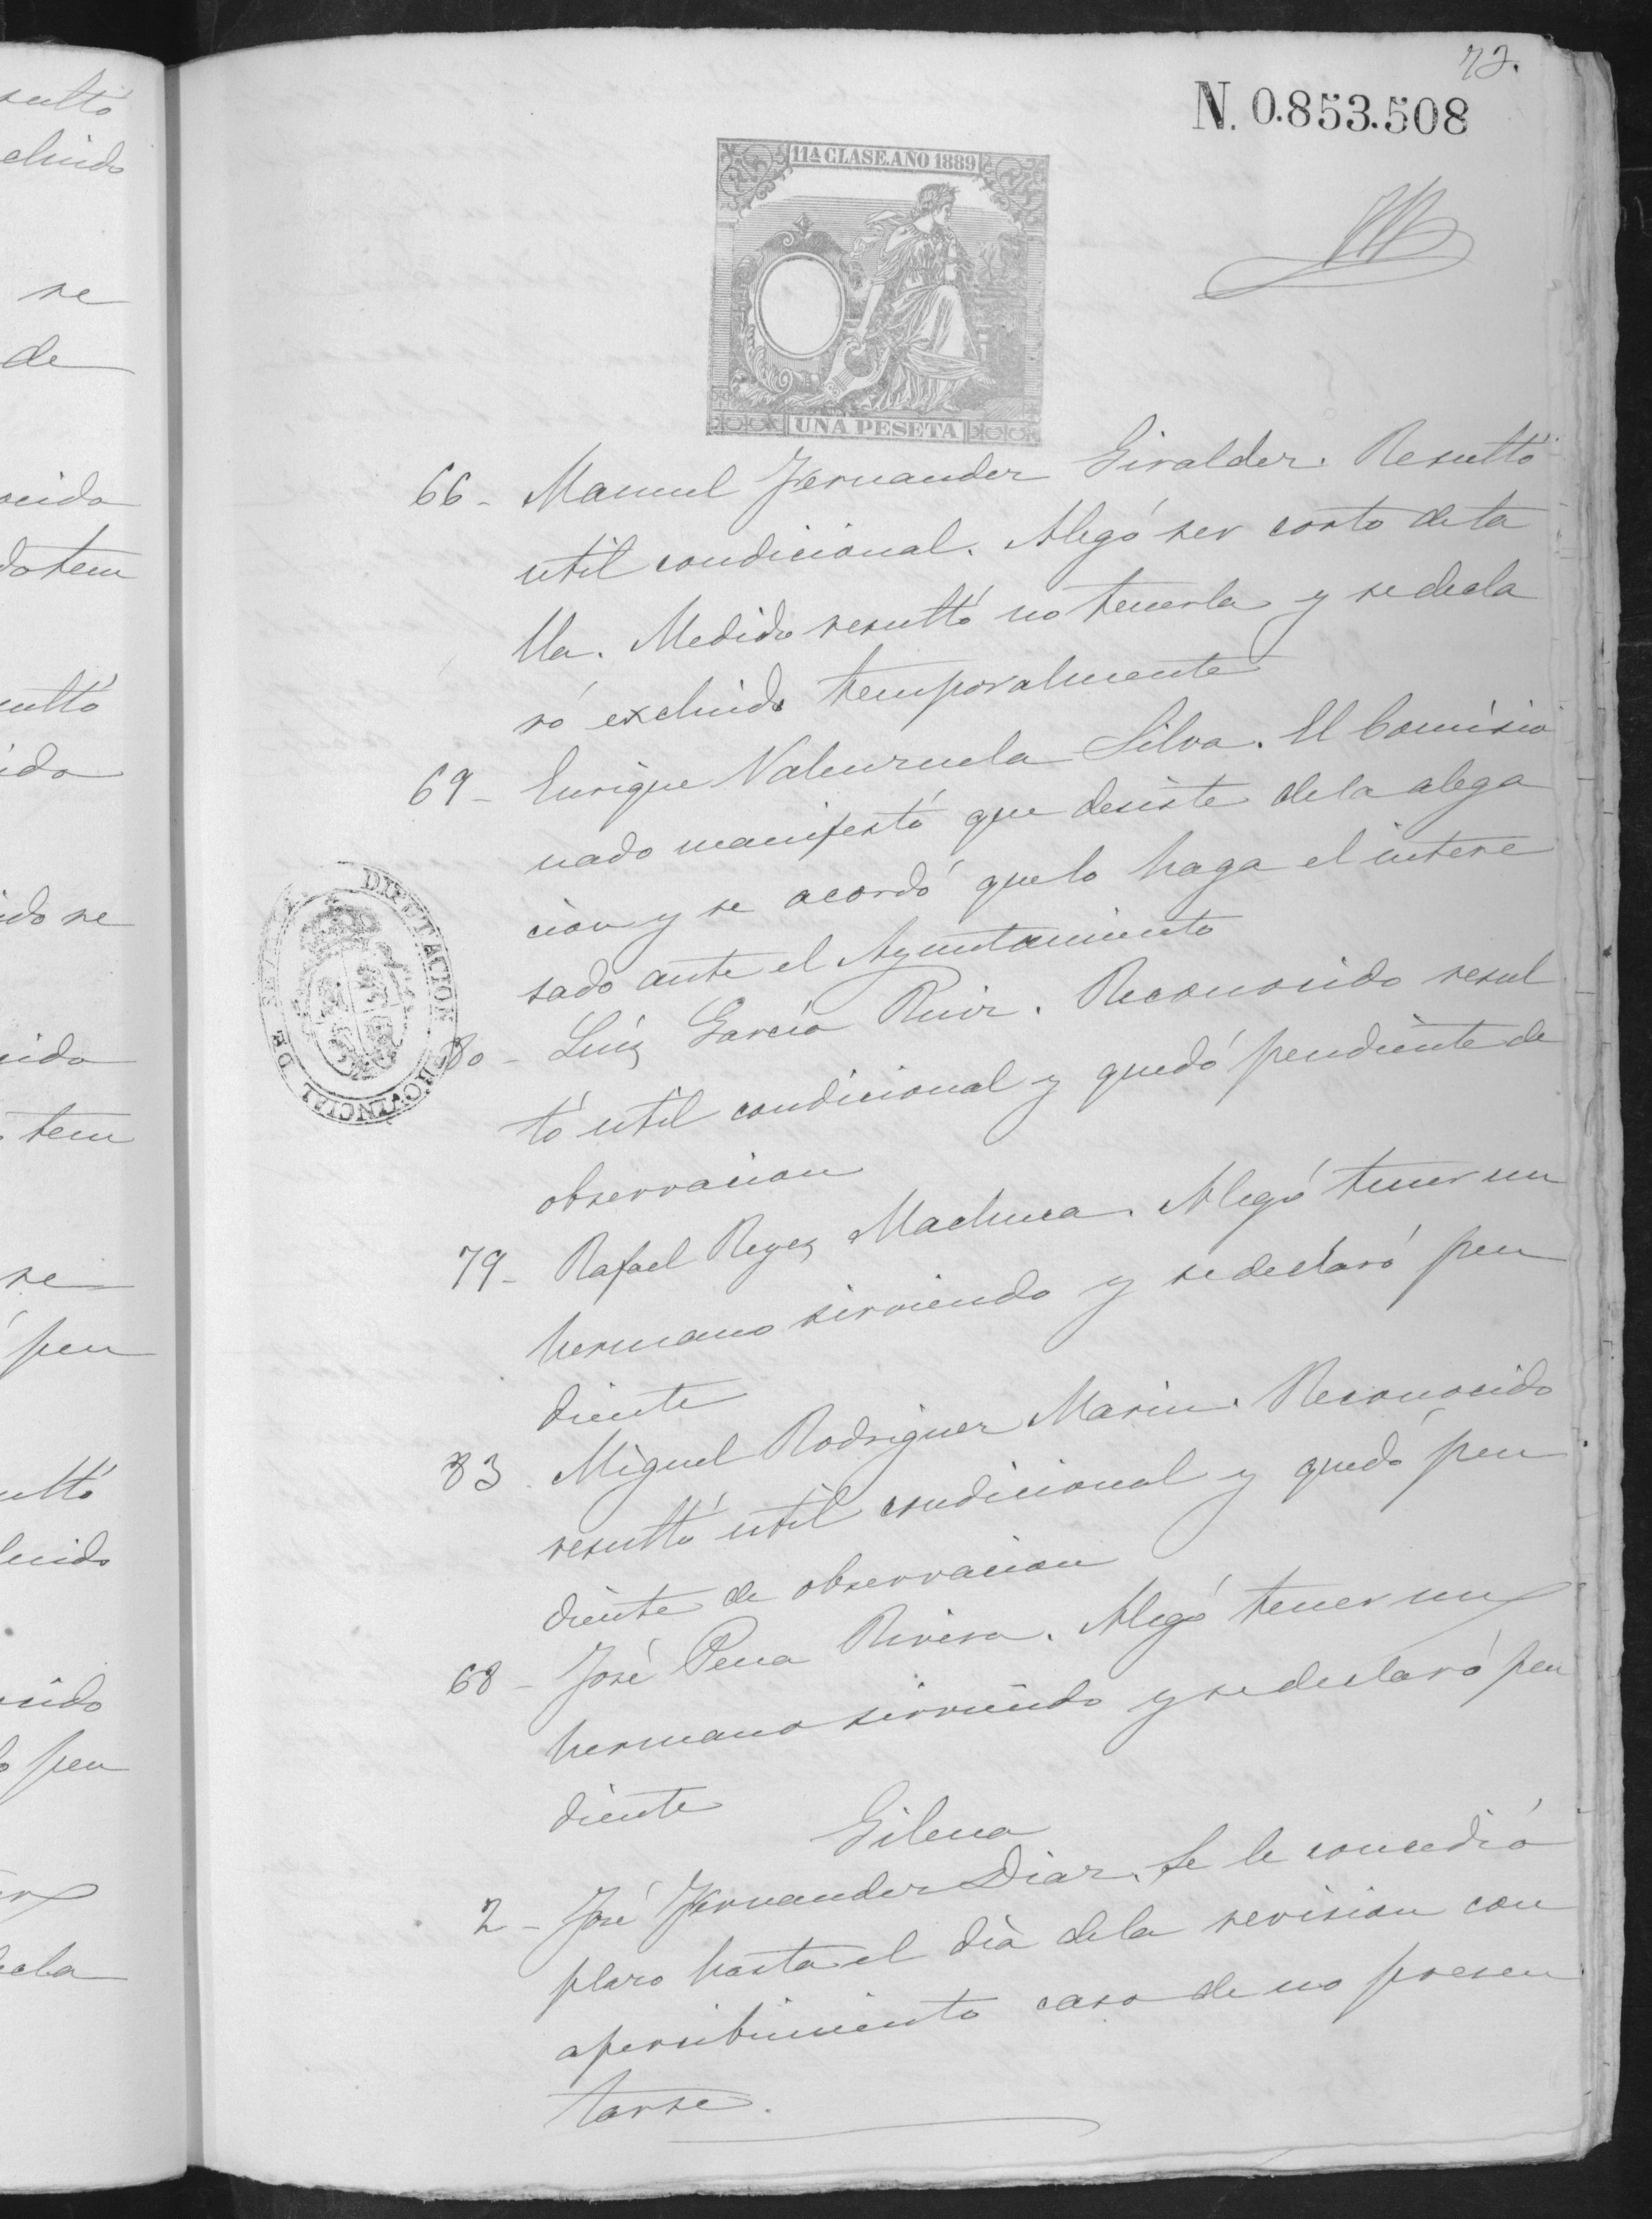 72.
N. 0.853.508
11ª CLASE. AÑO 1889
UNA PESETA
66 - Manuel Fernandez Giraldez. Resultó
util condicional. Alegó ser corto de ta
lla. Medido resultó no tenerla y se decla
ró excluido temporalmente
69 - Enrique Valenzuela Silva. El Comisio
nado manifestó que desiste de la alega
cion y se acordó que lo haga el intere
sado ante el Ayuntamiento
80 - Luis Garcia Ruiz. Reconocido resul
tó util condicional y quedó pendiente de
observacion
79 - Rafael Reyes Machuca. Alegó tener un
hermano sirviendo y se declaró pen
diente
83 Miguel Rodriguez Marin. Reconocido
resultó util condicional y quedó pen
diente de observacion
68 - José Pena Rivera. Alegó tener un
hermano sirviendo y se declaró pen
diente
Gilena
2 - José Fernandez Diaz. Se le concedió
plazo hasta el dia de la revision con
apercibimiento caso de no presen
tarse.
DIPUTACION PROVINCIAL DE
sultó
cluido
se
de
ocido
do tem
sultó
ido
ido se
cido
tem
se
pen
ultó
luido
ocido
pen
cla